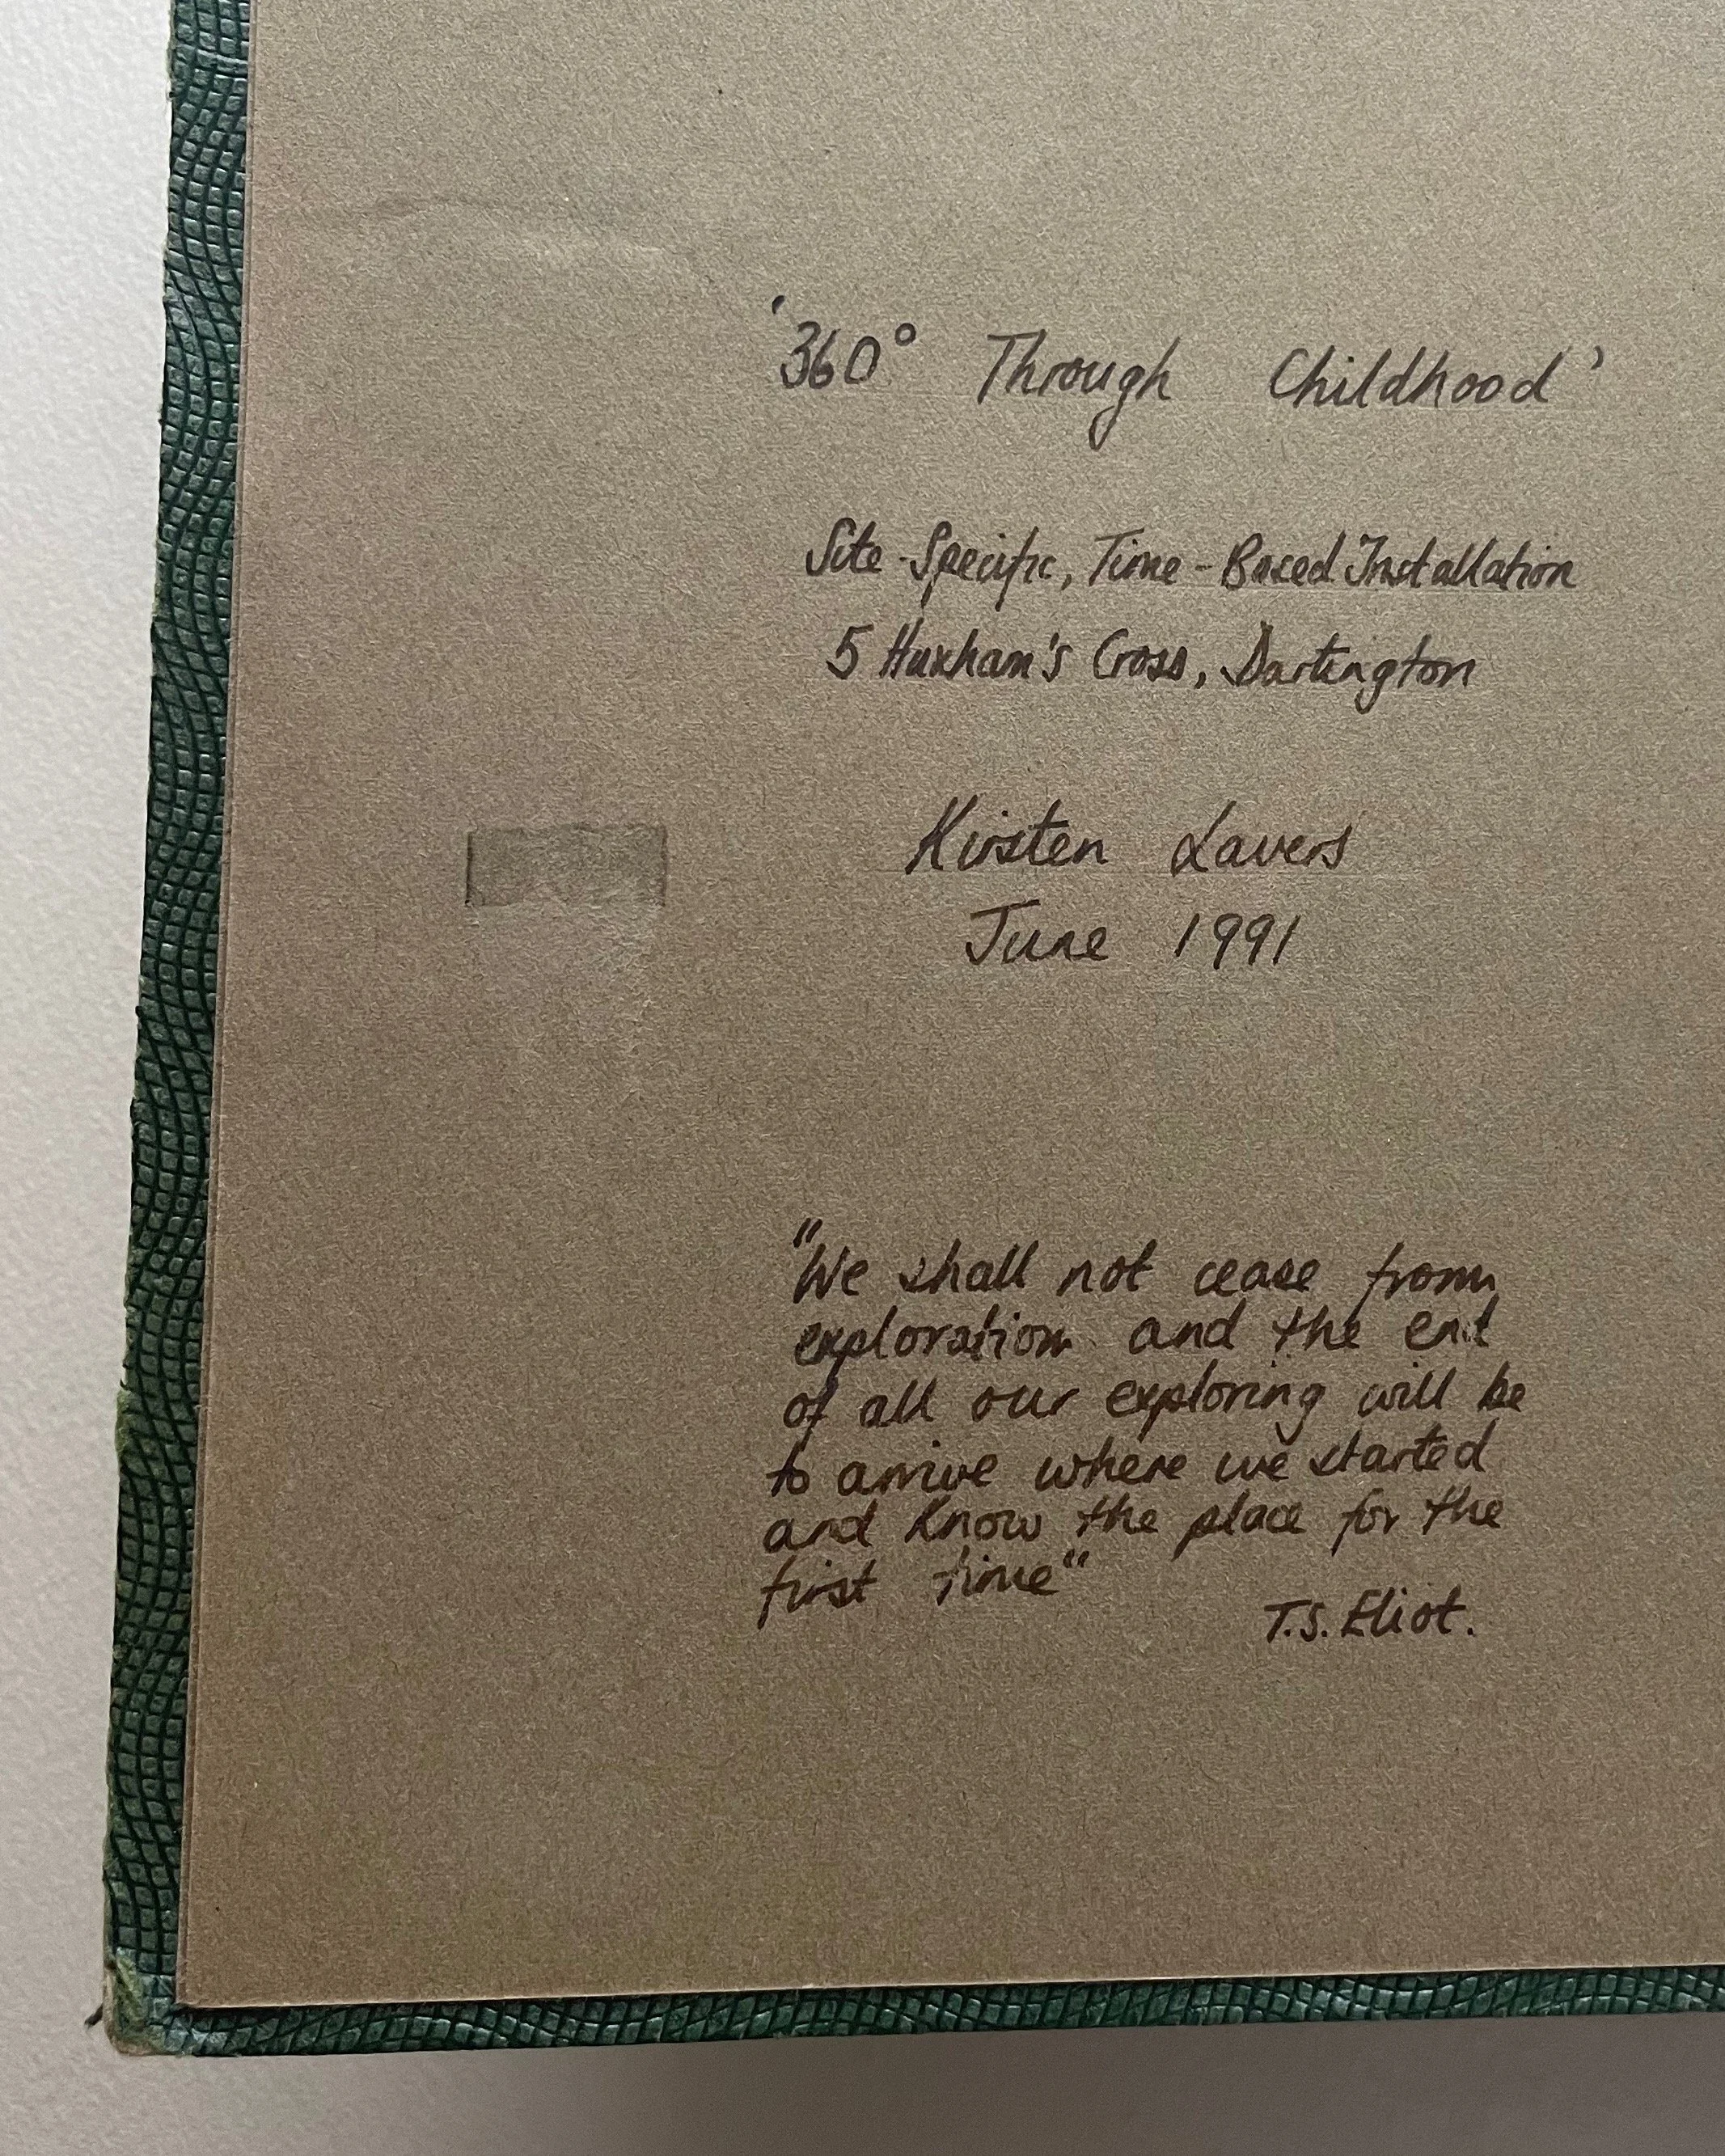 '360° Through Childhood'
Site-Specific, Time-Based Installation
5 Huxham's Cross, Dartington
Kirsten Lavers
June 1991
"We shall not cease from
exploration and the end
of all our exploring will be
to arrive where we started
and know the place for the
first time"
T.S. Eliot.